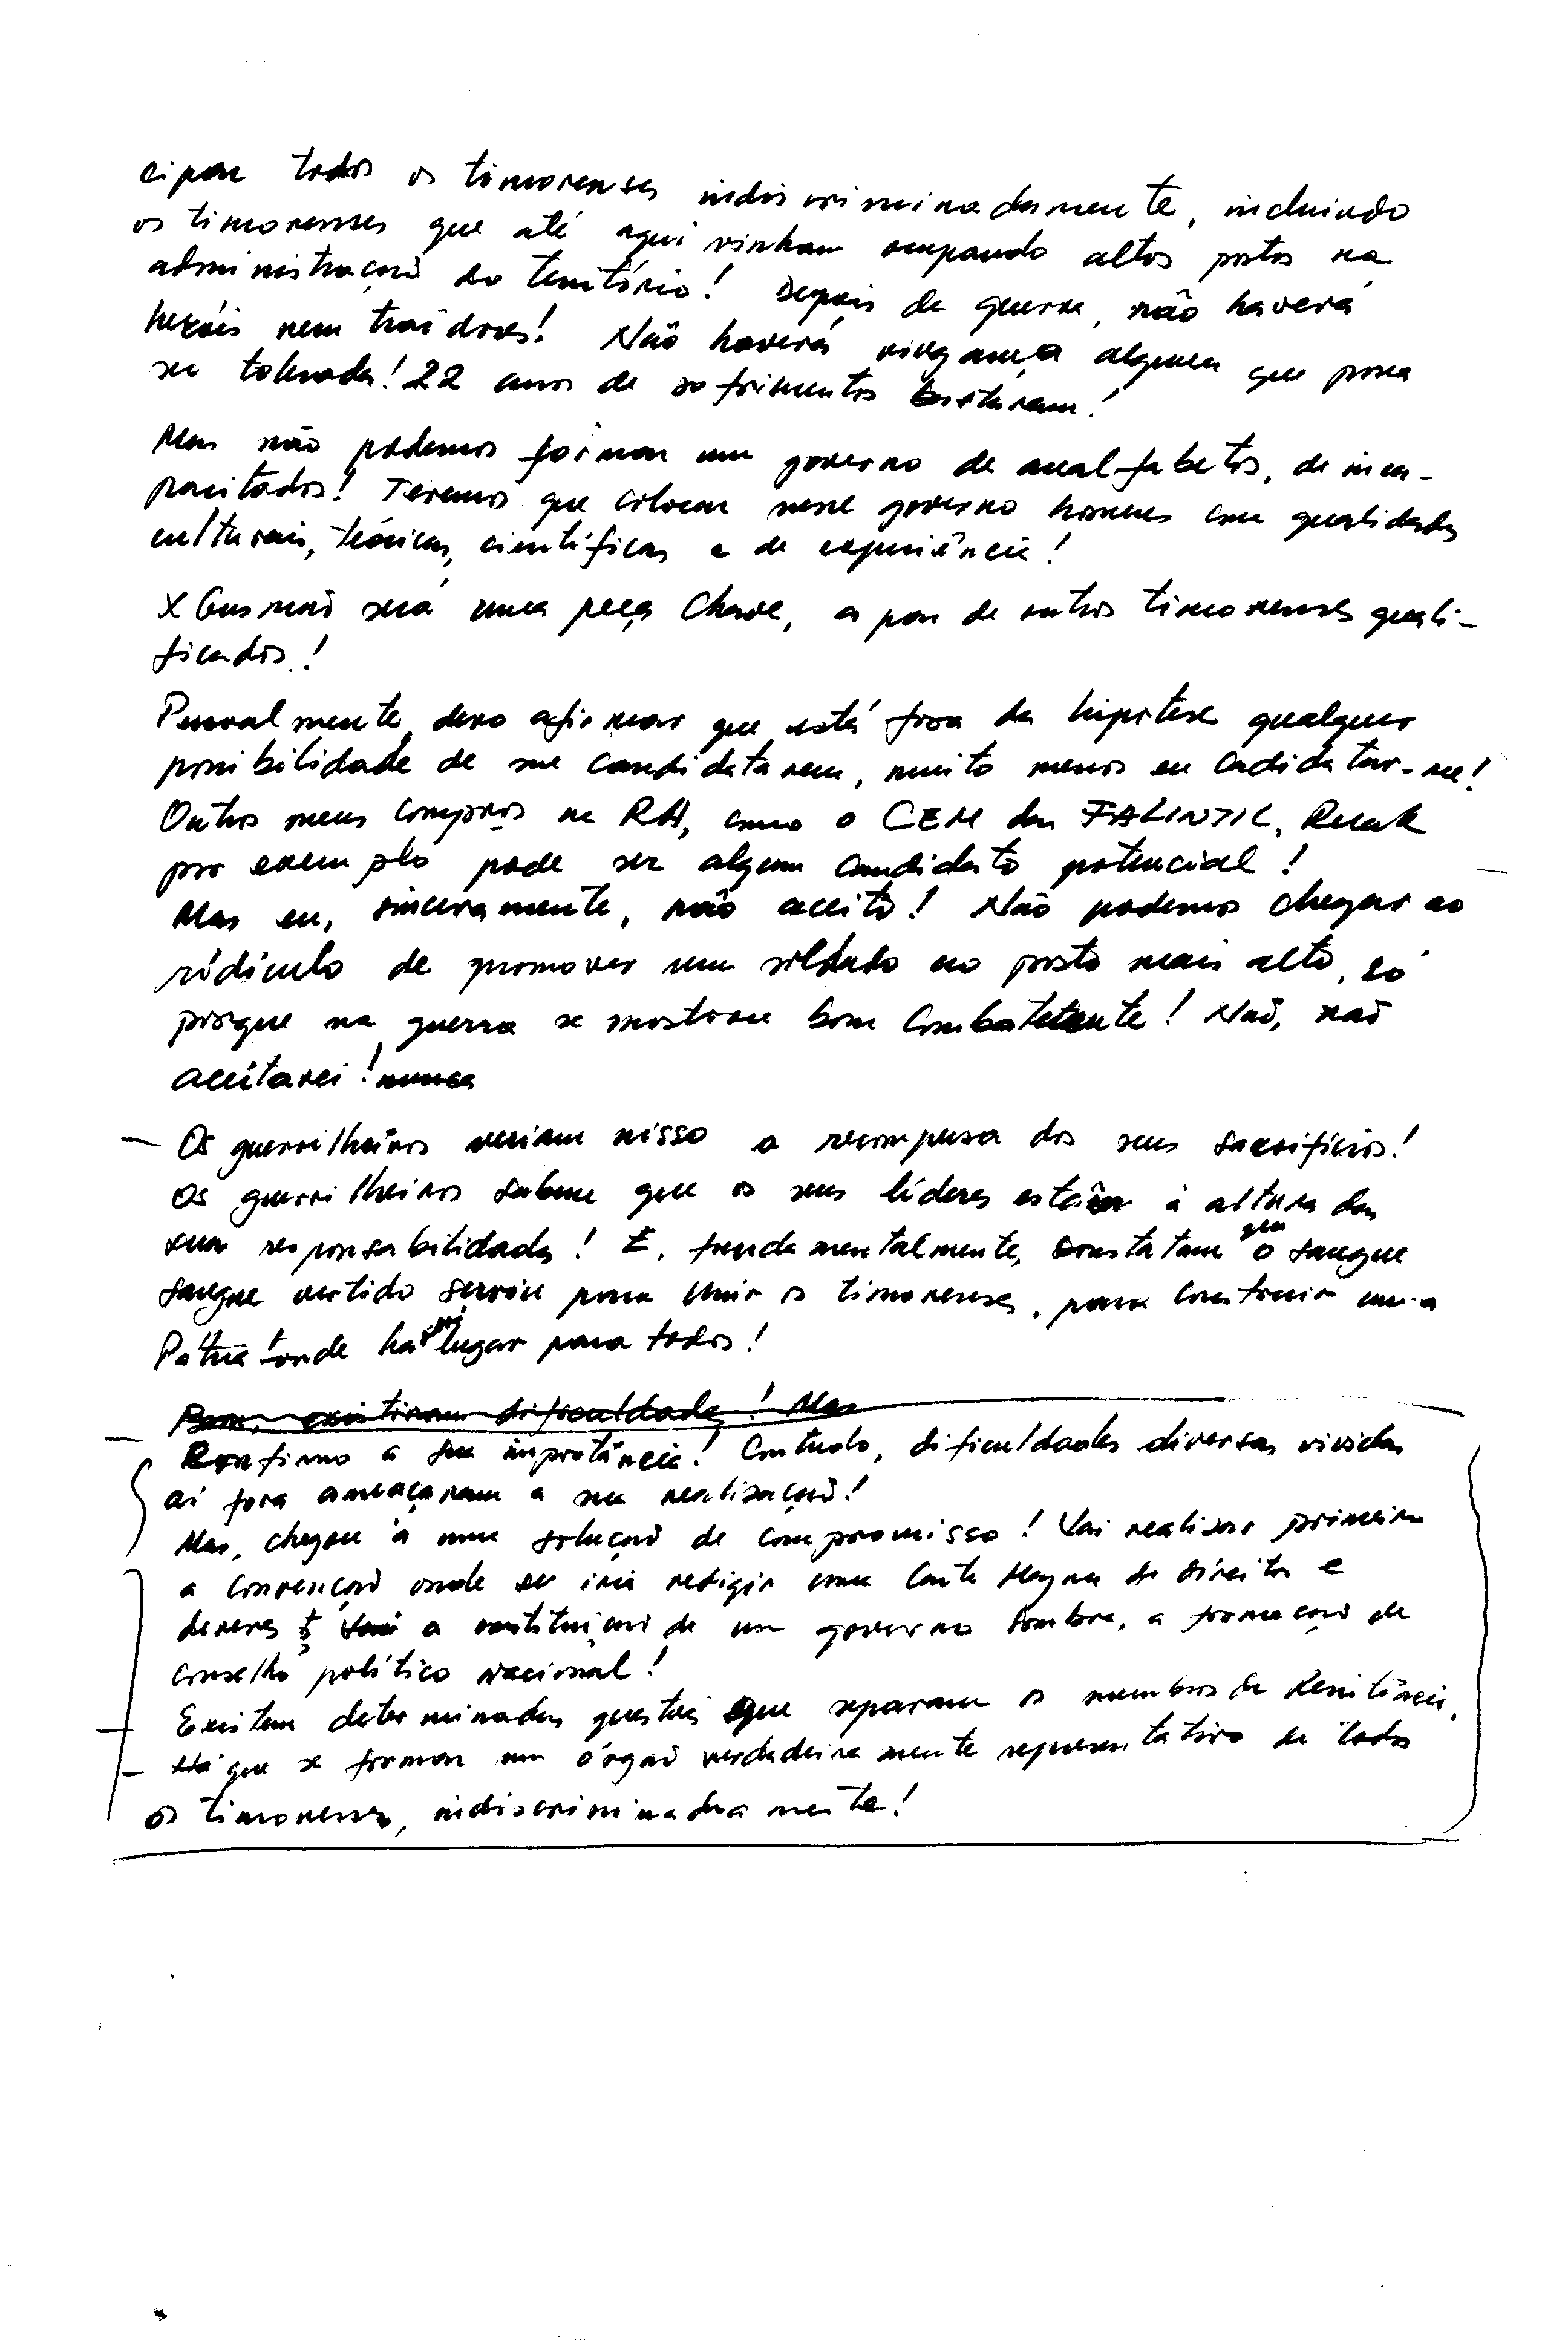 cipar todos os timorenses indiscriminadamente, incluindo
os timorenses que até aqui vinham ocupando altos postos na
administração do território! Depois da guerra, não haverá
heróis nem traidores! Não haverá vingança alguma que possa
ser tolerada! 22 anos de sofrimentos bastaram!
Mas não podemos formar um governo de analfabetos, de inca-
pacitados! Teremos que colocar nesse governo homens com qualidades
culturais, técnicas, científicas e de experiência!
X Gusmão será uma peça chave, a par de outros timorenses quali-
ficados!
Pessoalmente, devo afirmar que está fora da hipótese qualquer
possibilidade de me candidatarem, muito menos eu cadidatar-me!
Outros meus compnos na RA, como o CEM das FALINTIL, Ruak
por exemplo pode ser algum candidato potencial!
Mas eu, sinceramente, não aceito! Não podemos chegar ao
rídículo de promover um soldado ao posto mais alto, só
porque na guerra se mostrou bom combatente! Não, não
aceitarei! nunca
— Os guerrilheiros veriam nisso a recompensa dos seus sacrifícios!
Os guerrilheiros sabem que os seus líderes estão à altura das
suas responsabilidades! E, fundamentalmente, constatam que o sangue
sangue vertido serviu para unir os timorenses, para construir uma
Pátria onde haverá lugar para todos!
Bom, existiram dificuldades! Mas
— Reafirmo a sua importância! Contudo, dificuldades diversas vividas
aí fora ameaçaram a sua realização!
Mas, chegou à uma solução de compromisso! Vai realizar primeiro
a convenção onde se irá redigir uma Carta Magna de direitos e
deveres e a constituição de um governo sombra, a formação de
conselho político nacional!
— Existem determinadas questões que separam os membros da Resistência.
— Há que se formar um órgão verdadeiramente representativo de todos
os timorenses, indiscriminadamente!